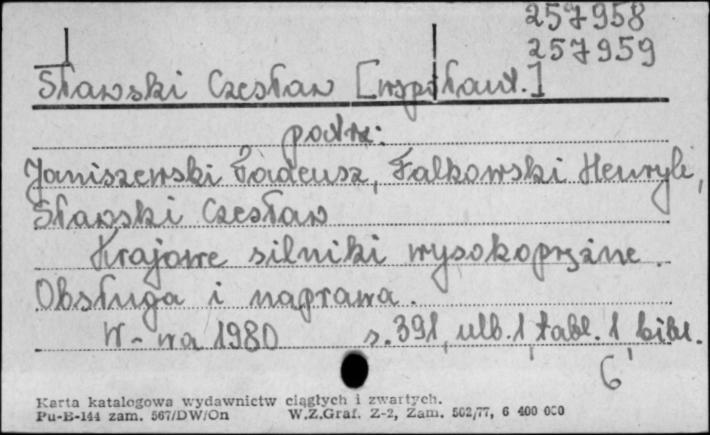 257958
257959
Sławski Czesław [współaut.]
patrz:
Janiszewski Tadeusz, Falkowski Henryk,
Sławski Czesław
Krajowe silniki wysokoprężne.
Obsługa i naprawa.
W-wa 1980 s. 391, ulb. 1, tabl. 1, bibl.
6
Karta katalogowa wydawnictw ciągłych i zwartych.
Pu-B-144 zam. 567/DW/On W.Z.Graf. Z-2, Zam. 502/77, 6 400 000